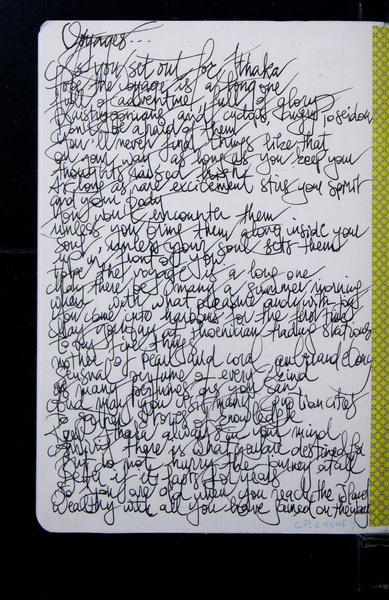 Voyages...
As you set out for Ithaka
hope the voyage is a long one
full of adventure full of glory
Laistrygonians and cyclops angry poseidon
don't be afraid of them
You'll never find things like that
on your way as long as you keep your
thoughts raised
As long as rare excitement stirs your spirit
and your body
You won't encounter them
unless you bring them along inside your
soul, unless your soul sets them
up in front of you
hope the voyage is a long one
May there be many a summer morning
when with what pleasure and with joy
You come into harbors for the first time
may stop at phoenician trading stations
to buy fine things
mother of pearl and coral amber and ebony
sensual perfume of every kind
as many perfumes as you can
and may you visit many egyptian cities
to gather stores of knowledge
Keep Ithaka always in your mind
arriving there is what you are destined for
But do not hurry the journey at all
Better if it lasts for years
So you are old when you reach the island
Wealthy with all you have gained on the way
C.P. CAVAFY